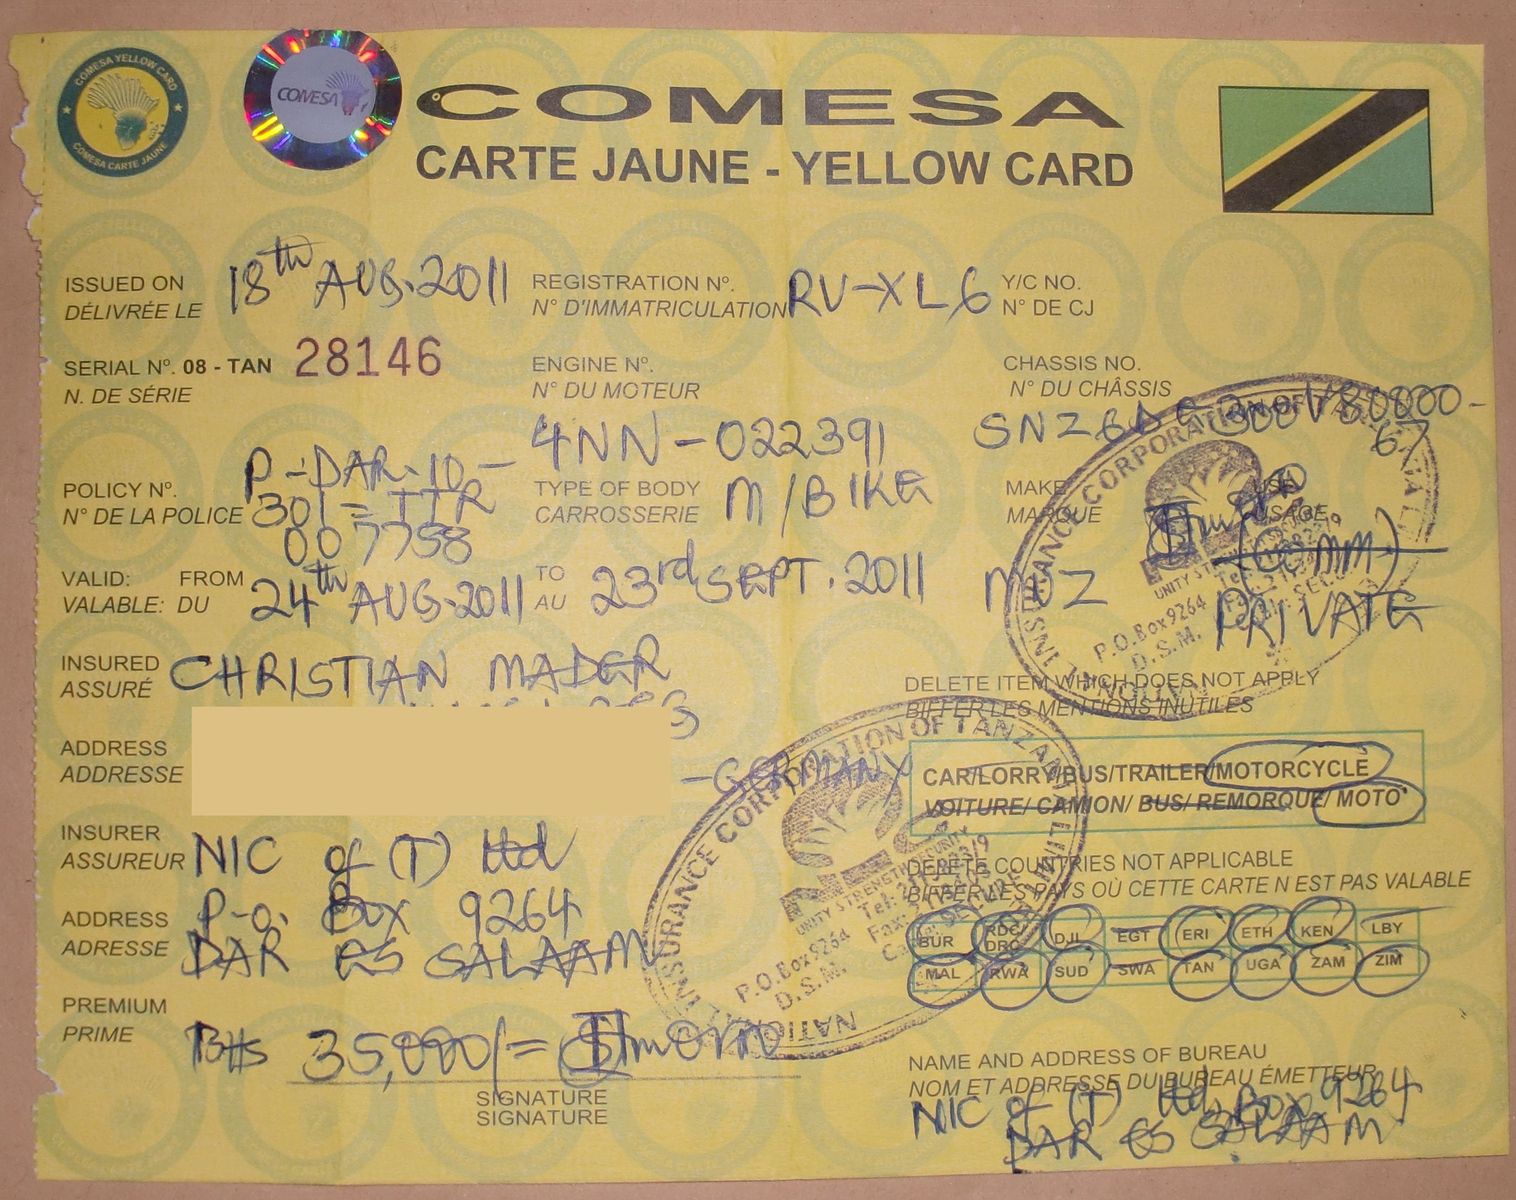 COMESA YELLOW CARD
COMESA CARTE JAUNE
COMESA
COMESA
CARTE JAUNE - YELLOW CARD
ISSUED ON 18th AUG. 2011 REGISTRATION Nº. RV-XL6 Y/C NO.
DÉLIVRÉE LE N° D'IMMATRICULATION N° DE CJ
SERIAL Nº. 08 - TAN 28146 ENGINE Nº. CHASSIS NO.
N. DE SÉRIE N° DU MOTEUR N° DU CHÂSSIS
4NN-022391
67
POLICY Nº. P-DAR-10- TYPE OF BODY M/BIKE MAKE USE
N° DE LA POLICE 301=TTR CARROSSERIE MARQUE USAGE
007758
VALID: FROM 24th AUG. 2011 TO 23rd SEPT. 2011 MUZ
VALABLE: DU AU PRIVATE
INSURED CHRISTIAN MADER
ASSURÉ
DELETE ITEM WHICH DOES NOT APPLY
BIFFER LES MENTIONS INUTILES
ADDRESS
ADDRESSE -GERMANY
CAR/LORRY/BUS/TRAILER/MOTORCYCLE
VOITURE/ CAMION/ BUS/ REMORQUE/ MOTO
INSURER NIC of (T) Ltd
ASSUREUR
DELETE COUNTRIES NOT APPLICABLE
BIFFER LES PAYS OÙ CETTE CARTE N EST PAS VALABLE
ADDRESS P.O. Box 9264
ADRESSE DAR ES SALAAM
BUR RDC/DRC DJI EGT ERI ETH KEN LBY
MAL RWA SUD SWA TAN UGA ZAM ZIM
PREMIUM
PRIME 35,000/=
SIGNATURE
SIGNATURE
NAME AND ADDRESS OF BUREAU
NOM ET ADDRESSE DU BUREAU ÉMETTEUR
NIC of (T) Ltd, Box 9264
DAR ES SALAAM
NATIONAL INSURANCE CORPORATION OF TANZANIA
UNITY STRENGTH SECURITY
P.O.Box 9264
D.S.M.
NATIONAL INSURANCE CORPORATION OF TANZANIA
UNITY STRENGTH SECURITY
P.O.Box 9264
D.S.M.